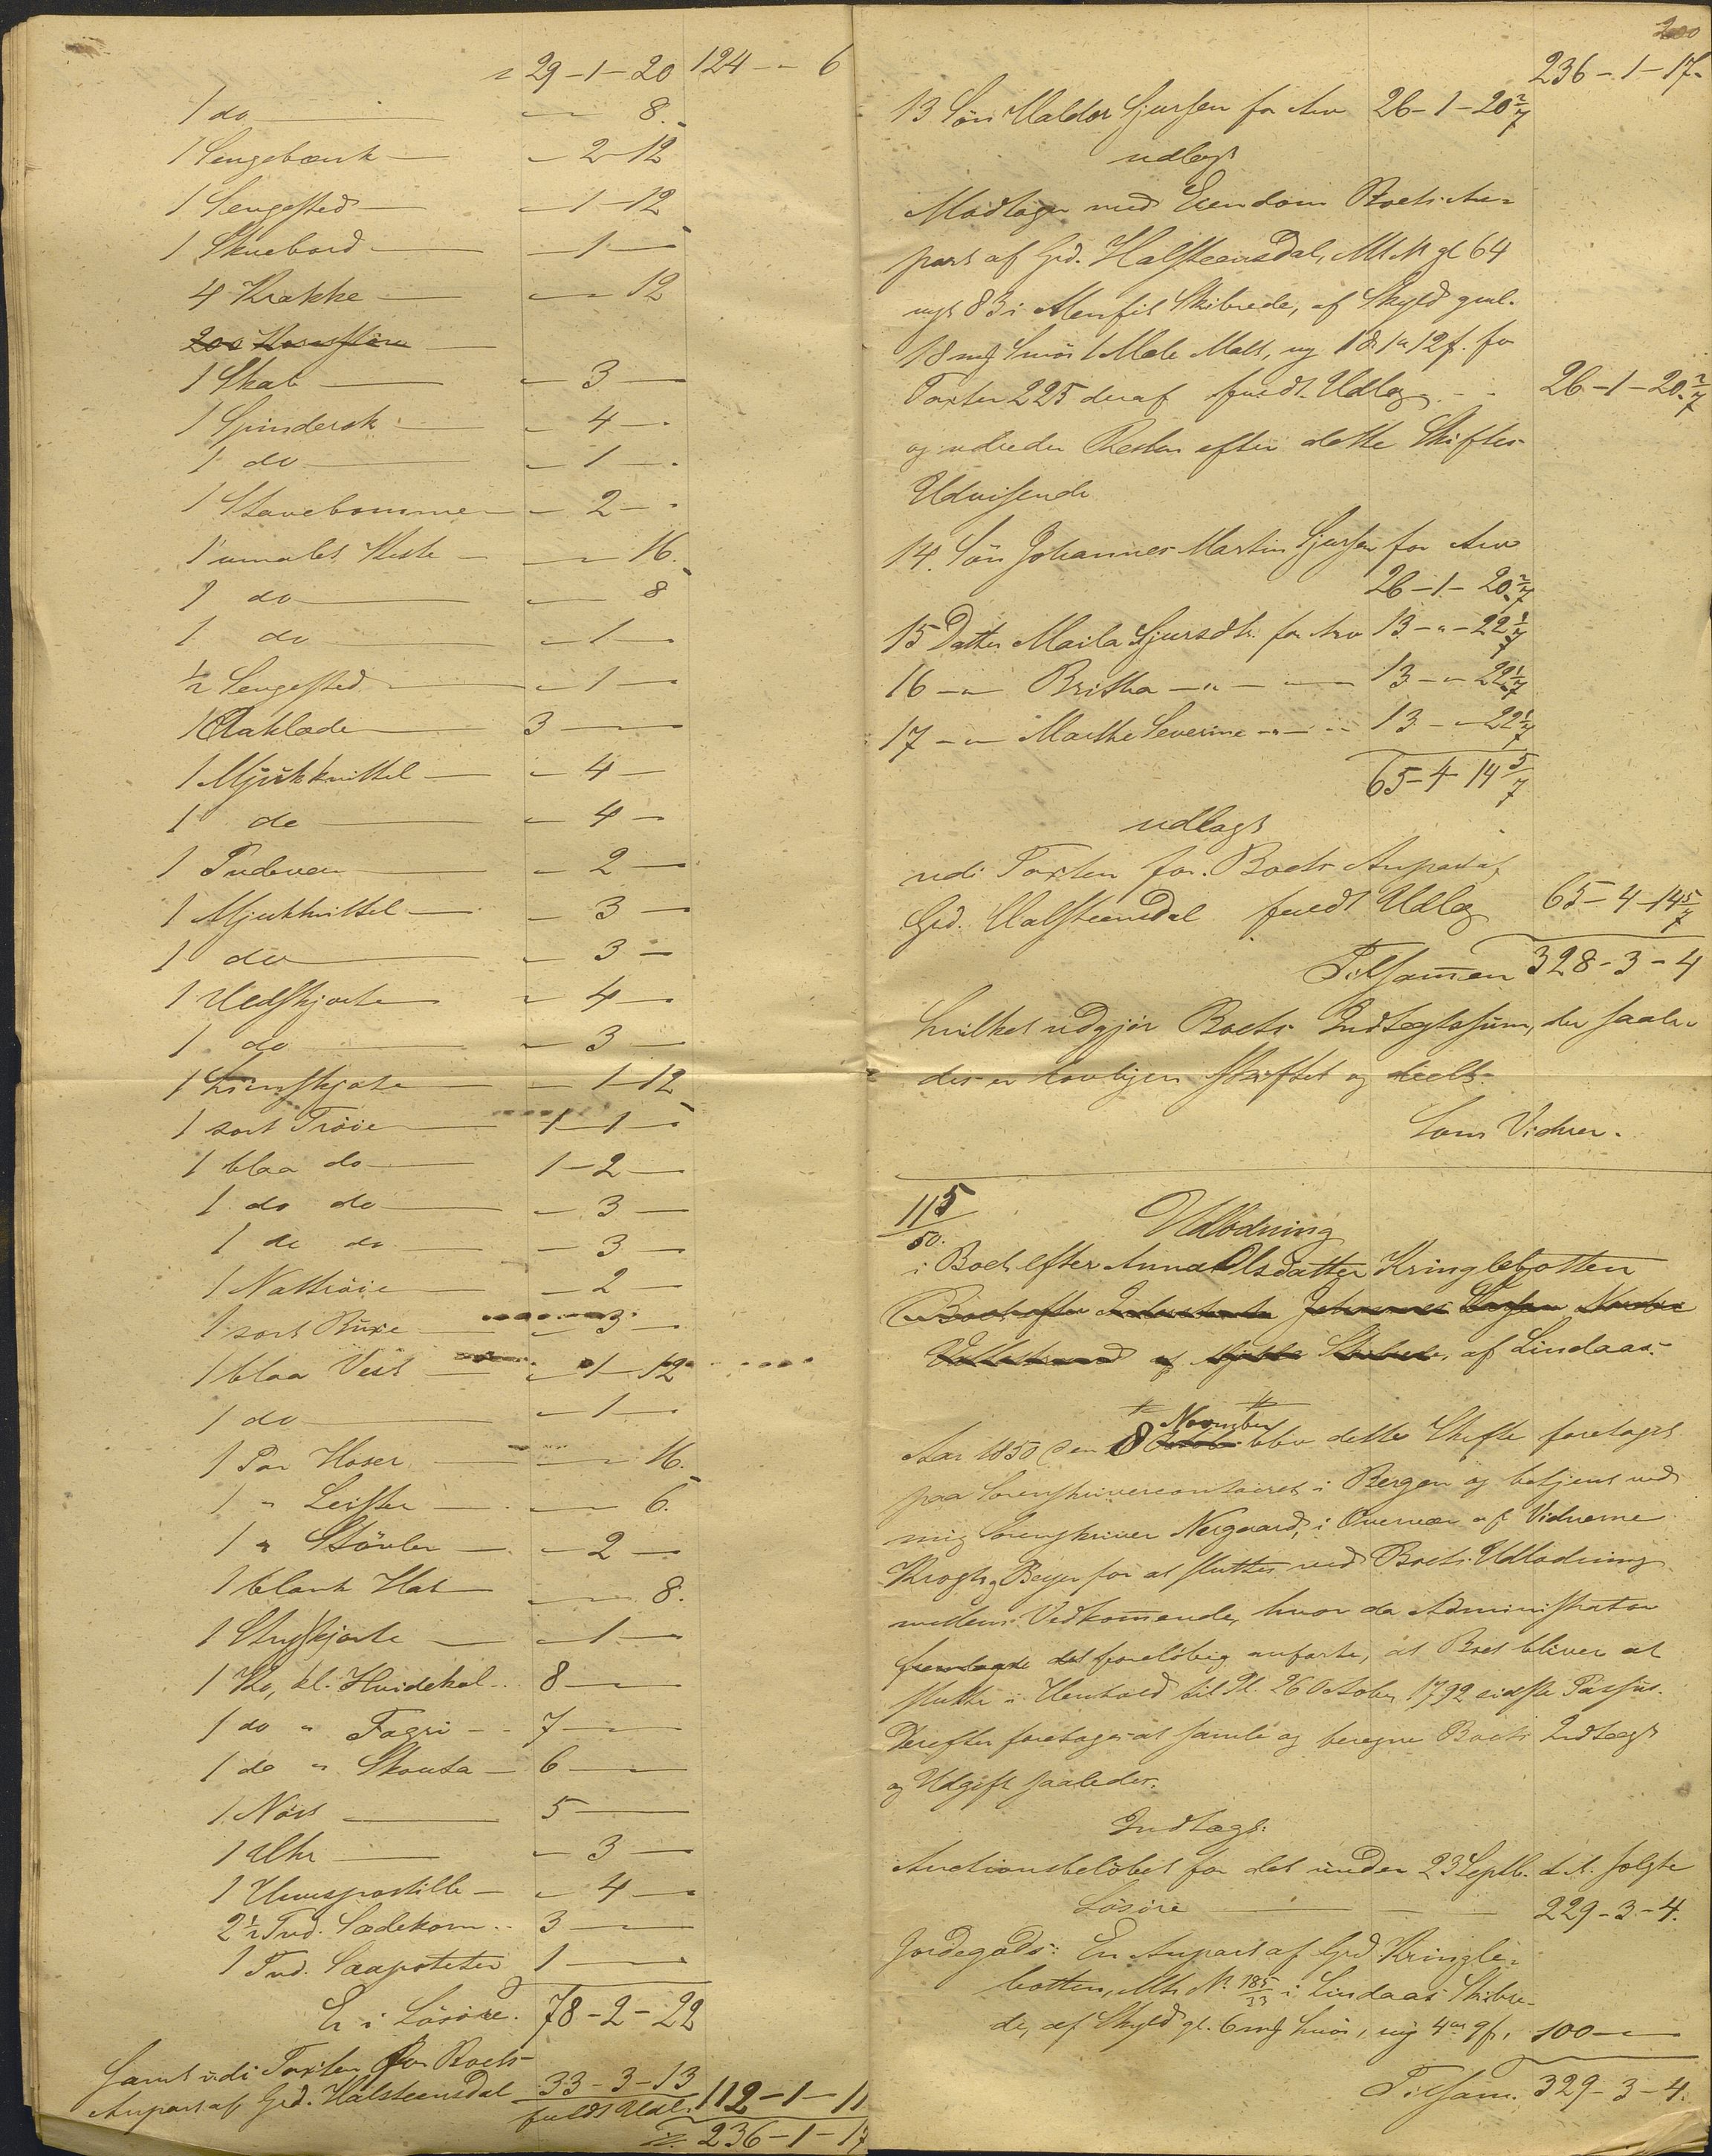 29-1-20 124 - " 6
1 do " " 8.
1 Sengebænk " 2-12
1 Sengested " 1-12
1 Skuebord " 1 "
4 Krakke " " 12
1 Skab " 3 "
1 Spinderok " 4 "
1 do " 1 "
1 Stavebomme " 2 "
1 umalet Kiste " " 16.
1 do " " 8
1 do " 1 "
1/2 Sengested " 1 "
1 Aaklæde 3 "
1 Mjukknittel " 4 "
1 do " 4 "
1 Pudevaar " 2 "
1 Mjukknittel " 3 "
1 do " 3 "
1 Uldskjorte " 4 "
1 do " 3 "
1 Linskjorte " 1-12
1 sort Trøie 1-1 "
1 blaa do 1-2 "
1 do do " 3 "
1 do do " 3 "
1 Nattrøie " 2 "
1 sort Buxe " 3 "
1 blaa Vest " 1-12
1 do " 1 "
1 Par Hoser " " 16.
1 " Leister " " 6.
1 " Støvler " 2 "
1 blank Hat " " 8.
1 Stryskjorte " 1 "
1 Ko, kl. Hvidekol 8 "
1 do " Fagri 7 "
1 do " Skouta 6 "
1 Nöst 5 "
1 Uhr " 3 "
1 Huuspostille " 4 "
2 1/2 Tnd. Sædekorn 3 "
1 Tnd. Sæapoteter 1 "
Er i Løsøre. 78-2-22
Samt udi Taxten for Boets
Anpart af Grd. Halsteensdal 33-3-13 112-1-11
fuldt Udl.
236-1-17
200
236-1-17
13 Søn Haldor Sjursen for Arv 26-1-20 2/7
udlagt
Modtager med Eiendom Boets An-
part af Grd. Halsteensdal, Mt. N gl 64
nyt 83 i Skibrede, af Skyld gml.
18 mk Smör 1 Mæle Malt, ny 1 d. 1 12 s. for
Taxten 225 deraf fuldt Udlæg 26-1-20 2/7
og udreder Resten efter dette Skiftes
Udvisende
14. Søn Johannes Martin Sjursen for Arv
26-1-20 2/7
15 Datter Marta Sjursdtr. for Arv 13-"-22 1/7
16 -"- Britha -"- 13-"-22 1/7
17 -"- Marthe Severine -"- 13-"-22 1/7
65-4-14 5/7
udlagt
udi Taxten for Boets Anpart af
Grd. Halsteensdal fuldt Udlæg 65-4-14 5/7
Tilsammen 328-3-4
hvilket udgjør Boets Indtægtssum, der saale-
des er lovligen skiftet og deelt.
Som Vidner.
115/50.
Udlodning
i Boet efter Anna Olsdatter Kringlebotten
af Lindaas.
November
Aar 1850 den 8 blev dette Skifte foretaget
paa Sorenskrivercontoiret i Bergen og betjent ved
mig Sorenskriver Nergaard, i Overvær af Vidnerne
Krogh og Beyer for at sluttes ved Boets Udlodning
mellem Vedkommende, hvor da Administrator
foreløbig anførte, at Boet bliver at
slutte i Henhold til Pl. 26 October 1792 sidste Passus.
Derefter foretages at samle og beregne Boets Indtægt
og Udgift saaledes.
Indtægt:
Auctionsbeløbet for det under 23 Septbr. d. A. solgte
Løsøre 229-3-4.
Jordegods: En Anpart af Grd Kringle-
botten, Mtr. N. 185/33 i Lindaas Skibre-
de, af Skyld gl. 6 mk Smör, ny 4 ort 9 s, 100 "
Tilsam. 329-3-4.